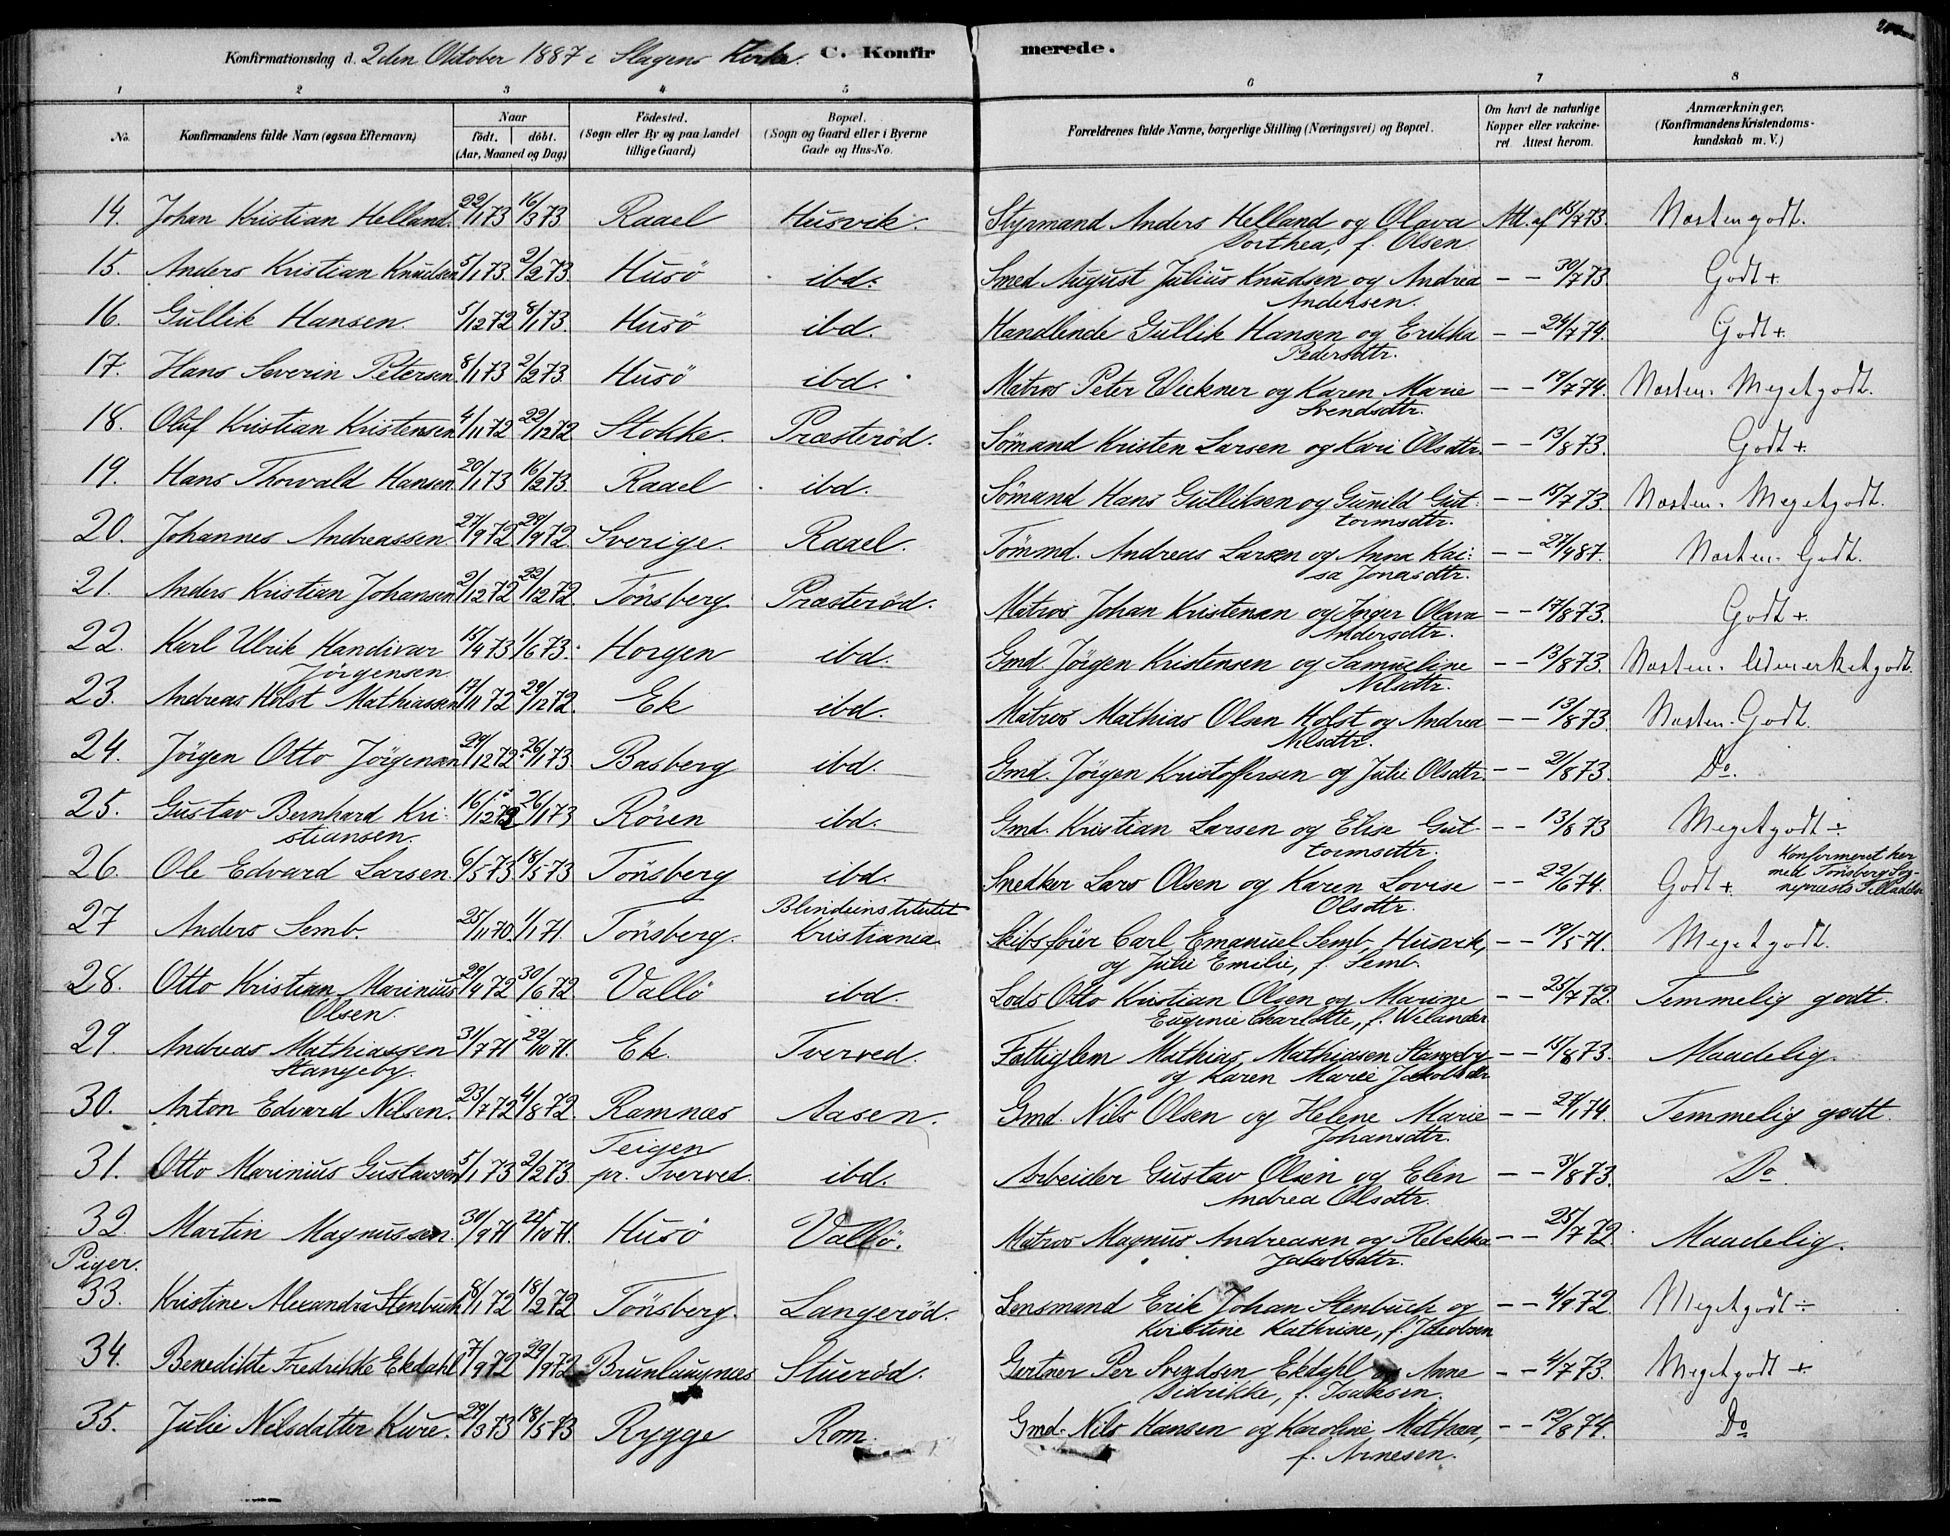 Konfirmationsdag d. 2den Oktober 1887 i Slagens Kirke. C. Konfirmerede.
1 2 3 4 5 6 7 8
No. Konfirmandens fulde Navn (ogsaa Efternavn) Naar födt. döbt. (Aar, Maaned og Dag) Födested. (Sogn eller By og paa Landet tillige Gaard) Bopæl. (Sogn og Gaard eller i Byerne Gade og Hus-No. Forældrenes fulde Navne, borgerlige Stilling (Næringsvei) og Bopæl. Om havt de naturlige Kopper eller vakcineret. Attest herom. Anmærkninger, (Konfirmandens Kristendomskundskab m. V.)
14. Johan Kristian Helland. 22/1 73 16/3 73 Raael Husvik. Styrmand Anders Helland og Olava Dorthea, f. Olsen Att. af 15/7 73. Næsten godt.
15. Anders Kristian Knudsen 5/1 73. 2/2 73. Husö ibd. Smed August Julius Knudsen og Andrea Andersen. – – 30/7 73. Godt +
16. Gullik Hansen. 5/12 72 8/1 73. Husö ibd. Handlende Gullik Hansen og Erikka Pedersdtr. – – 24/7 74. Godt +
17. Hans Severin Petersen. 8/1 73 2/2 73. Husö ibd. Matros Peter Wickner og Karen Marie Svendsdtr. – – 19/7 74. Næsten Meget godt.
18. Oluf Kristian Kristensen 4/11 72 22/12 72 Stokke. Præsterød. Sömand Kristen Larsen og Kari Olsdtr. – – 13/8 73. Godt +
19. Hans Thorvald Hansen. 20/1 73 16/2 73. Raael ibd. Sömand Hans Gulliksen og Gunild Guttormsdtr. – – 15/7 73. Næsten Meget godt.
20. Johannes Andreassen 27/9 72 29/9 72. Sverige. Raael. Tömmd. Andreas Larsen og Anna Kaisa Jonasdtr. – – 27/4 87. Næsten Godt.
21. Anders Kristian Johansen 2/12 72 22/12 72. Tönsberg. Præsterød. Matros Johan Kristensen og Inger Olava Andersdtr. – – 17/8 73. Godt +
22. Karl Ulrik Handivar Jörgensen 15/4 73 1/6 73. Horgen ibd. Gmd. Jörgen Kristensen og Samueline Nilsdtr. – – 13/8 73. Næsten Udmerket godt.
23. Andreas Holst Mathiassen 17/11 72 29/12 72. Ek ibd. Matros Mathias Olsen Holst og Andrea Nilsdtr. – – 13/8 73. Næsten Godt
24. Jörgen Otto Jörgensen 29/12 72. 26/1 73. Basberg ibd. Gmd. Jörgen Kristoffersen og Julie Olsdtr. – – 2/8 73. Do.
25. Gustav Bernhard Kristiansen. 16/12 72 26/1 73 Rören ibd. Gmd. Kristian Larsen og Elise Guttormsdtr. – – 13/8 73 Meget godt ÷
26. Ole Edvard Larsen. 6/5 73. 18/5 73 Tönsberg ibd. Snedker Lars Olsen og Karen Lovise Olsdtr. – – 22/6 74. Godt + Konfirmeret her med Tönsberg Sognepræsts Tilladelse
27 Anders Semb. 25/11 70. 1/1 71. Tönsberg. Blindeinstitutet Kristiania. Skibsförer Carl Emanuel Semb, Husvik, og Julie Emilie, f. Semb. – – 19/5 71. Meget godt.
28. Otto Kristian Marinius Olsen. 29/4 72 30/6 72 Vallö ibd. Lods Otto Kristian Olsen og Marine Eugenie Charlotte, f. Welander – – 25/7 72. Temmelig godt.
29. Andreas Mathiassen Stangeby. 31/7 71 22/10 71. Ek. Tverved. Fattiglem Mathias Mathiasen Stangeby og Karen Marie Jakobsdtr – – 15/8 73. Maadelig.
30. Anton Edvard Nilsen. 23/7 72 4/8 72. Ramnæs Aasen. Gmd. Nils Olsen og Helene Marie Johansdtr. – – 27/1 74. Temmelig godt
31. Otto Marinius Gustavsen 5/1 73 2/2 73 Teigen pr. Tverved. ibd. Arbeider Gustav Olsen og Elen Andrea Olsdtr. – – 3/8 73. Do.
32. Martin Magnussen. 30/9 71 22/10 71. Husö Vallö. Matros Magnus Andreasen og Rebekka Jakobsdtr. – – 25/7 72. Maadelig.
Piger.
33. Kristine Alexandra Stenbuch 8/1 72 18/2 72 Tönsberg. Langeröd. Lensmand Erik Johan Stenbuch og Kirstine Kathrine, f. Jacobsen – – 4/9 72 Meget godt ÷
34. Benedikte Fredrikke Ekdahl 7/9 72 29/9 72 Brunlaugnæs Stueröd. Gartner Per Svendsen Ekdahl og Anne Didrikke, f. Isaksen. – – 4/7 73. Meget godt +
35. Julie Nilsdatter Kure. 29/3 73 18/5 73 Rygge Rom. Gmd. Nils Hansen og Karoline Mathea, f. Arnesen. – – 12/8 74. Do